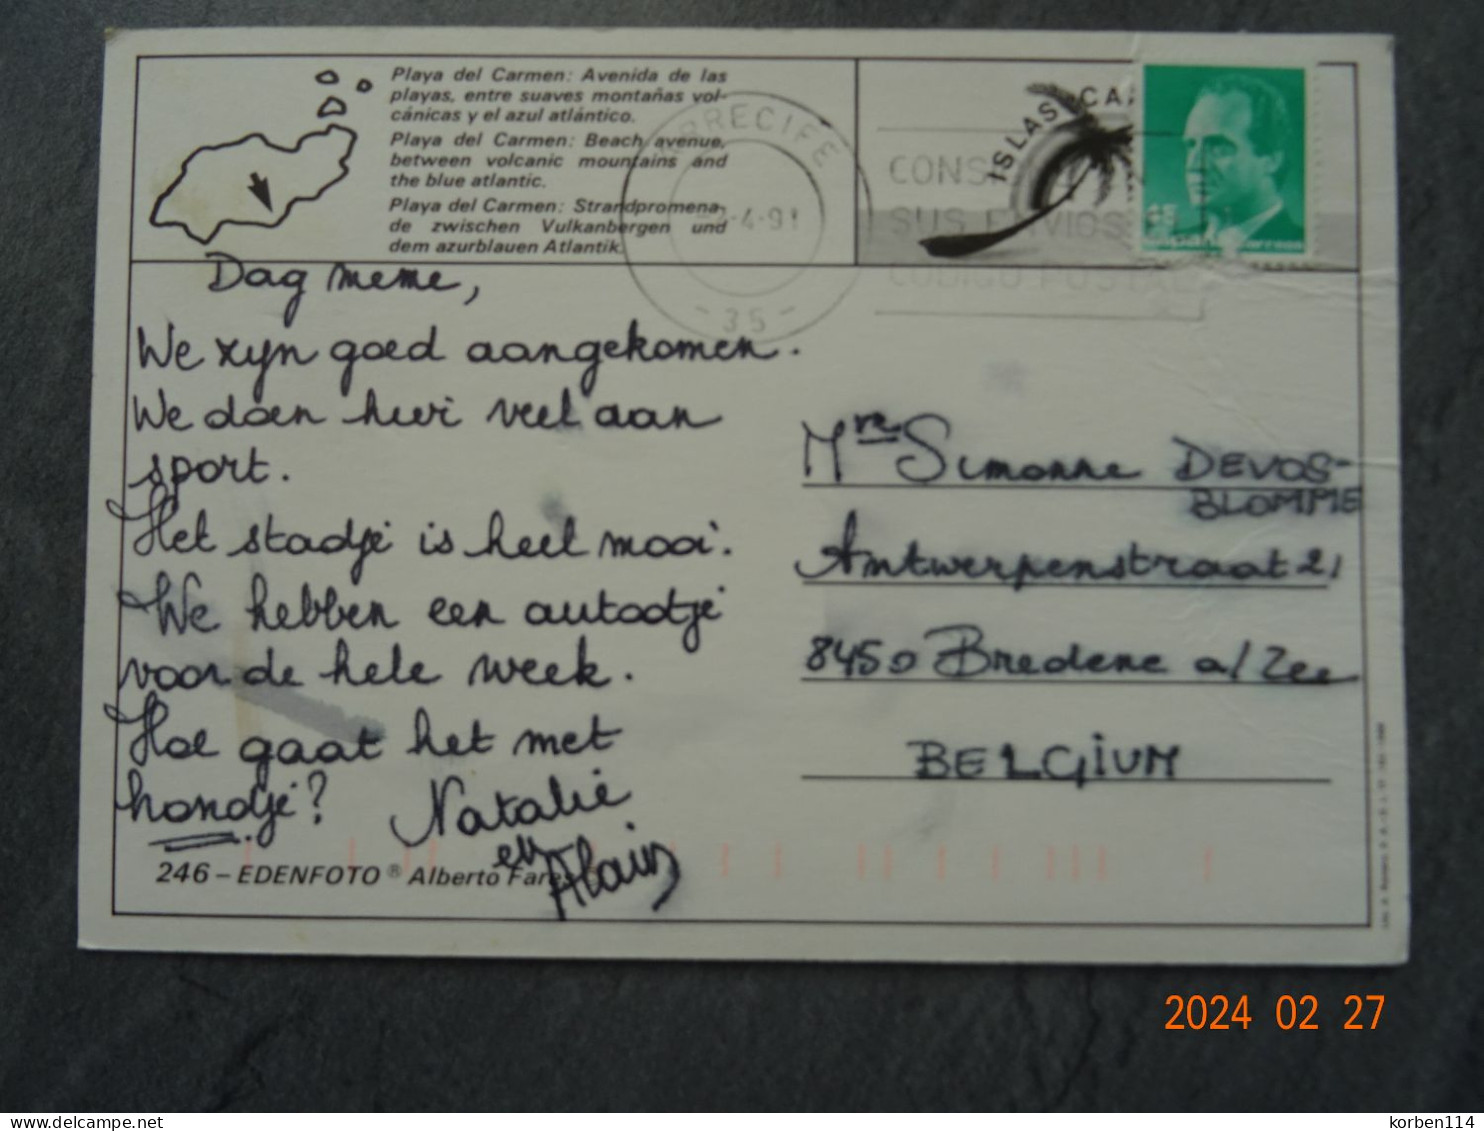 Playa del Carmen: Avenida de las
playas, entre suaves montañas vol-
cánicas y el azul atlántico.
Playa del Carmen: Beach avenue,
between volcanic mountains and
the blue atlantic.
Playa del Carmen: Strandpromena-
de zwischen Vulkanbergen und
dem azurblauen Atlantik.
ARRECIFE
-4-91
- 35 -
ISLAS CA
CONS
SUS ENVIOS
CODIGO POSTAL
Correos
Dag meme,
We zyn goed aangekomen.
We doen hier veel aan
sport.
Het stadje is heel mooi.
We hebben een autootje
voor de hele week.
Hoe gaat het met
hondje?
Natalie
en
Alain
Mvre Simonne DEVOS-
BLOMME
Antwerpenstraat 21
8450 Bredene a/Zee
BELGIUM
246 – EDENFOTO ® Alberto Fares
2024 02 27
delcampe.net
korben114